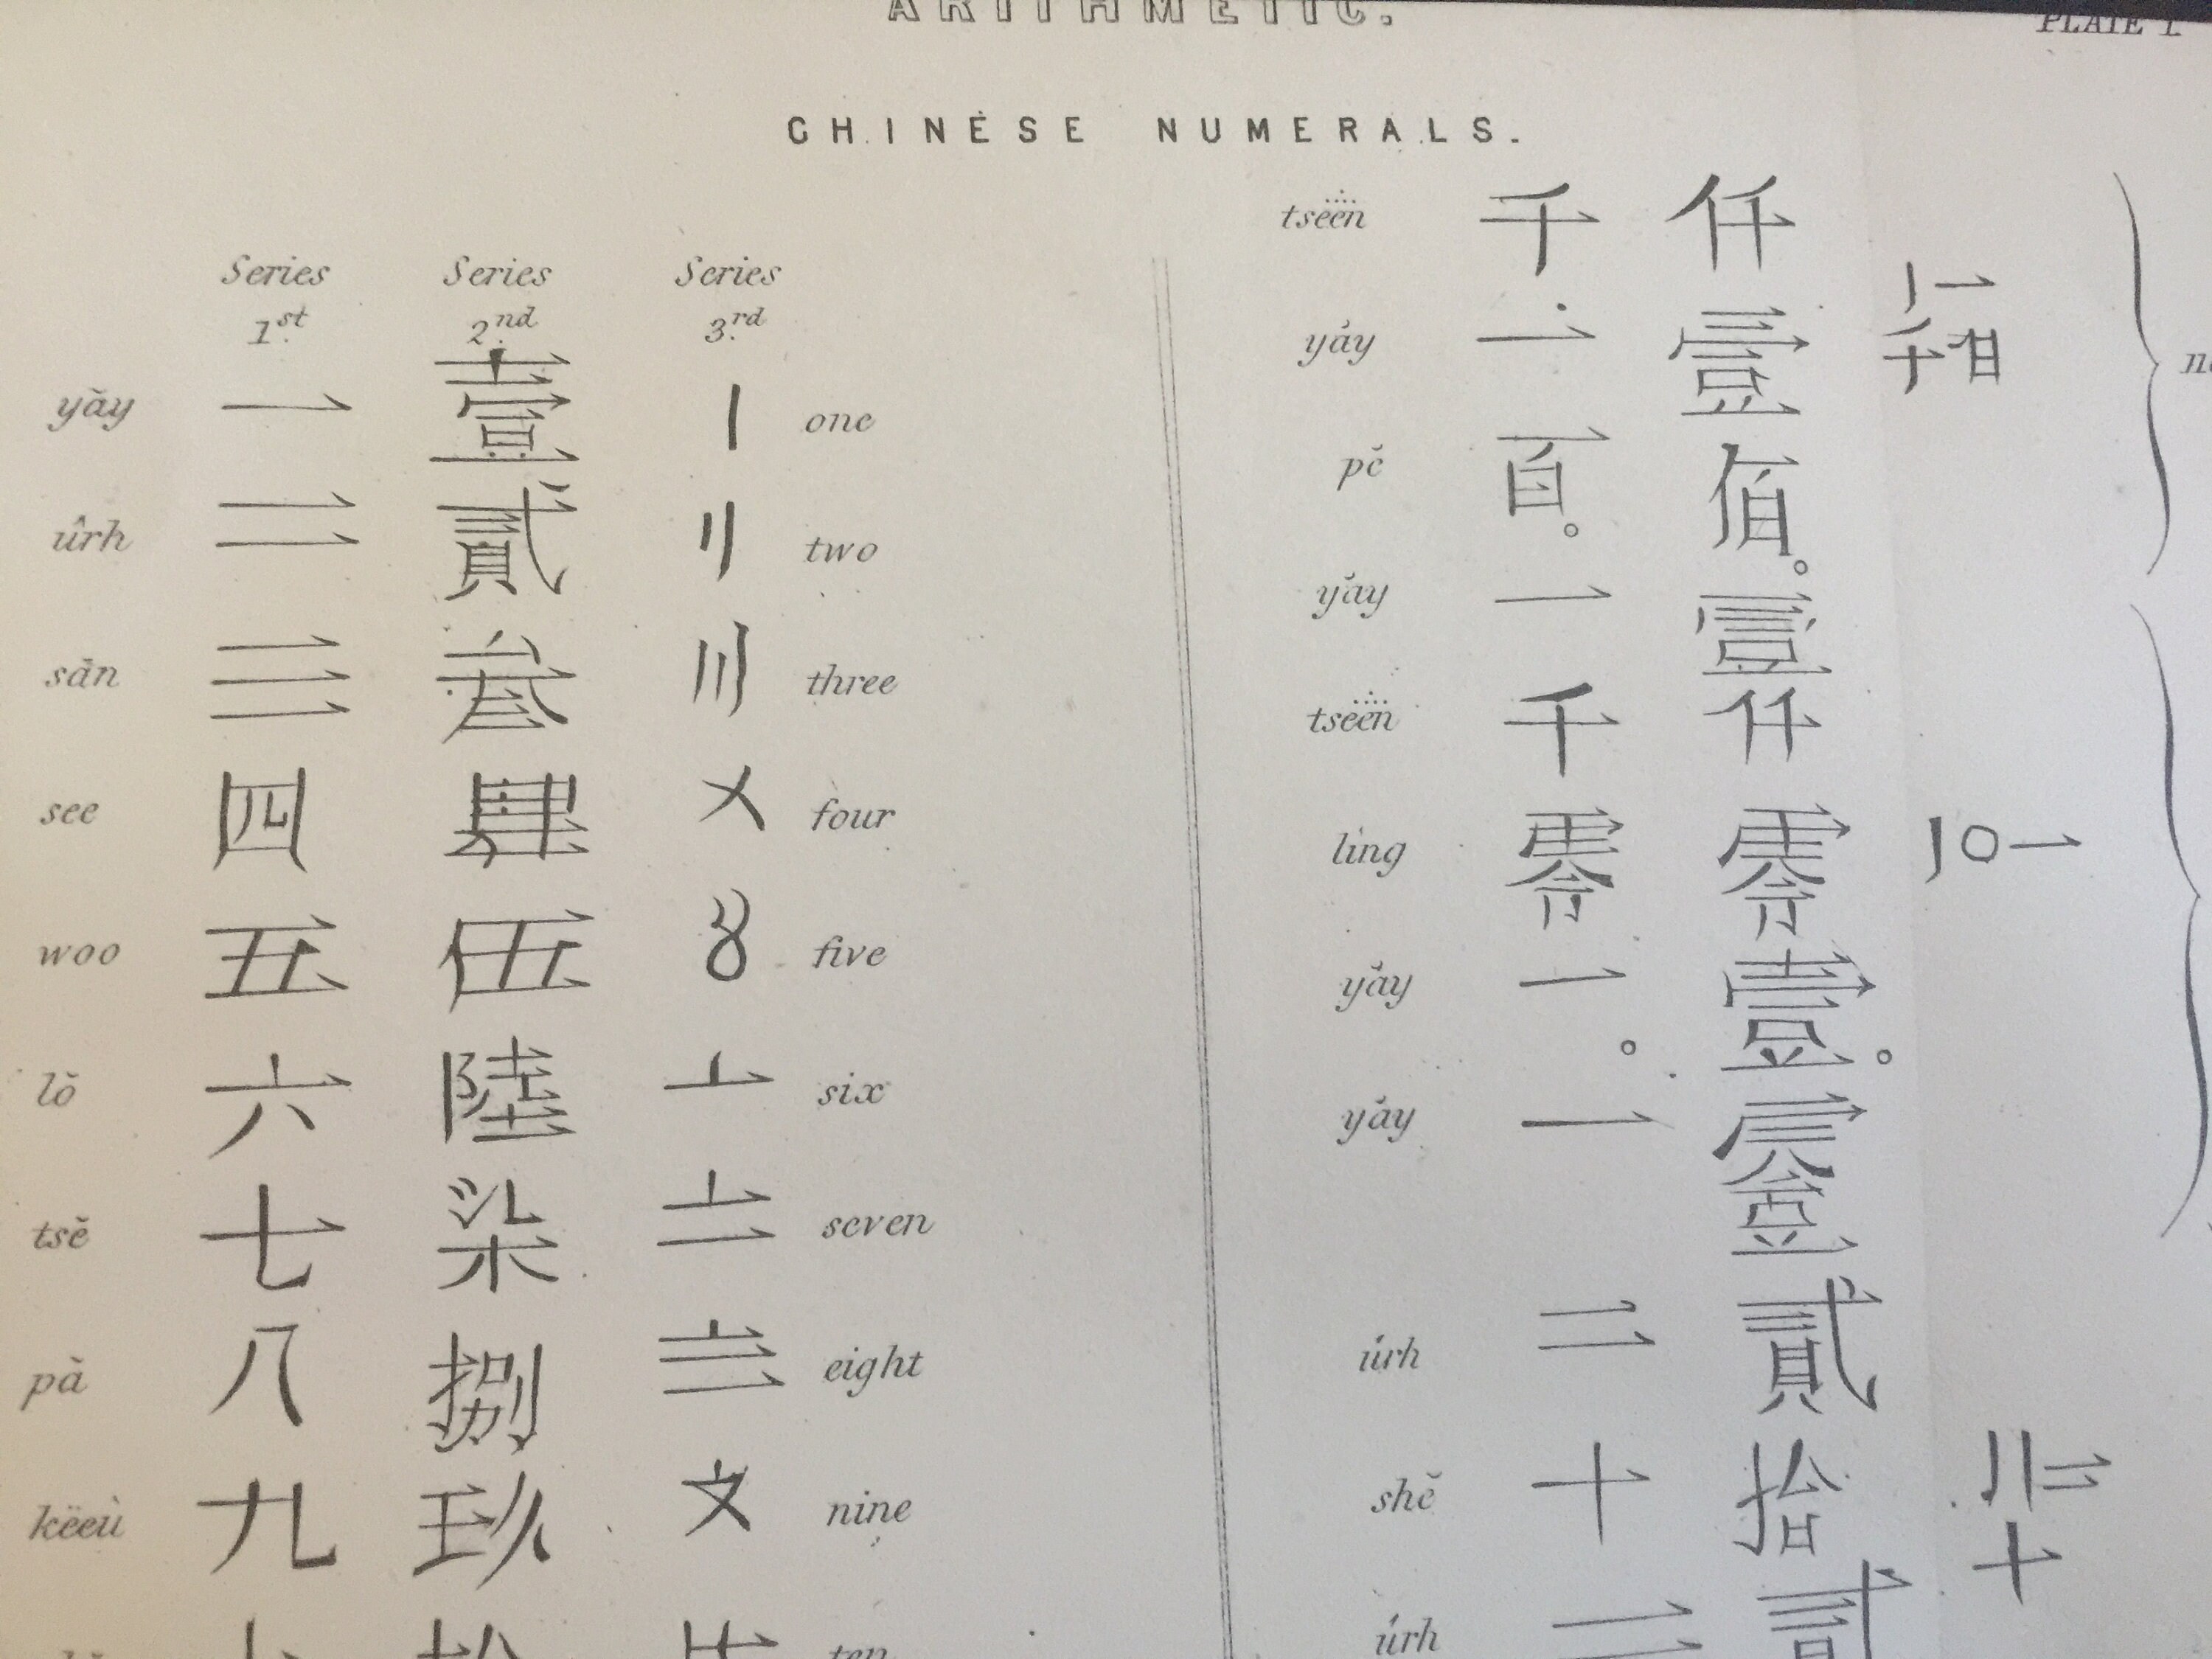 ARITHMETIC.
PLATE I.
CHINESE NUMERALS.
Series 1st. Series 2nd. Series 3rd.
yǎy 一 壹 〡 one
ûrh 二 貳 〢 two
sǎn 三 叁 〣 three
see 四 肆 〤 four
woo 五 伍 〥 five
lǒ 六 陸 〦 six
tsě 七 柒 〧 seven
pǎ 八 捌 〨 eight
këeù 九 玖 〩 nine
ten
tsëen 千 仟
yǎy 一 壹 〡一
千百
pě 百。 佰。
yǎy 一 壹
tsëen 千 仟
ling 零 零 〡〇一
yǎy 一。 壹。
yǎy 一 壹
úrh 二 貳
shě 十 拾 〢二
十
úrh 二 貳